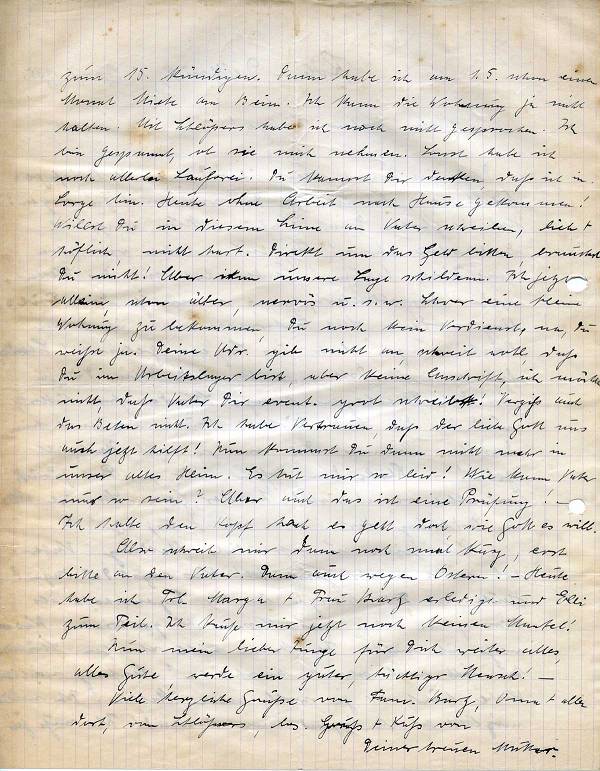 zum 15. kündigen. Dann habe ich am 1.5. schon einen
Monat Miete am Bein. Ich kann die Wohnung ja nicht
halten. Mit Schlössers habe ich noch nicht gesprochen. Ich
bin gespannt, ob sie mich nehmen. Sonst habe ich
noch allerlei Lauferei. Du kannst Dir denken, daß ich in
Sorge bin. Heute ohne Arbeit nach Hause gekommen!
Willst Du in diesem Sinne an Vater schreiben, lieb +
höflich, nicht hart. Direkt um das Geld bitten, brauchst
Du nicht! Aber ihm unsere Lage schildern. Ich jetzt
allein, schon älter, nervös u.s.w. Schwer eine kleine
Wohnung zu bekommen, Du noch kein Verdienst, na, Du
weißt ja. Deine Adr. gib nicht an, schreib voll, daß
Du im Arbeitslager bist, aber keine Anschrift, ich möchte
nicht, daß Vater Dir event. grob schreibt! Vergiß auch
das Beten nicht. Ich habe Vertrauen, daß der liebe Gott uns
auch jetzt hilft! Nun kommst Du dann nicht mehr in
unser altes Heim. Es tut mir so leid! Wie kann Vater
nur so sein? Aber auch das ist eine Prüfung! –
Ich halte den Kopf hoch es geht doch wie Gott es will.
Also schreib mir dann noch mal kurz, erst
bitte an den Vater. Dann auch wegen Ostern! – Heute
habe ich Frl. Marga + Frau Burg erledigt und Elli
zum Teil. Ich kaufe mir jetzt noch keinen Mantel!
Nun mein lieber Junge für Dich weiter alles,
alles Gute, werde ein guter, tüchtiger Mensch! –
Viele herzliche Grüße von Fam. Burg, Oma + allen
dort, von Schlössers, bes. Gruß + Kuß von
Deiner treuen Mutter.